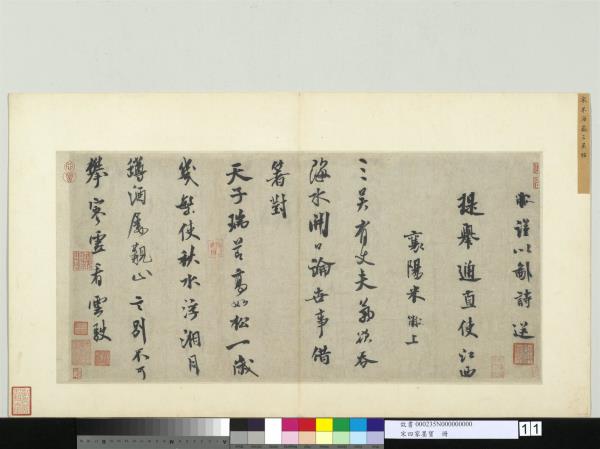 宋米海嶽三吳帖
黻謹以鄙詩送
提舉通直使江西
襄陽米黻上
三吳有丈夫氣欲吞
海水開口論世事借
箸對
天子瑞節高如松一歲
使秋水浮湘月
罇酒屬觀山之別不可
攀寥靈看雲駛
故書 000235N000000000
宋四家墨寶 冊
11